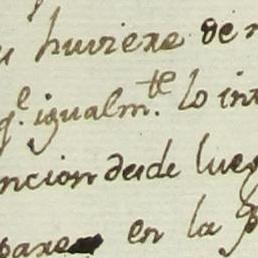 huviexe de
q.e igualm.te lo int
ncion desde lueg
paxe en la P